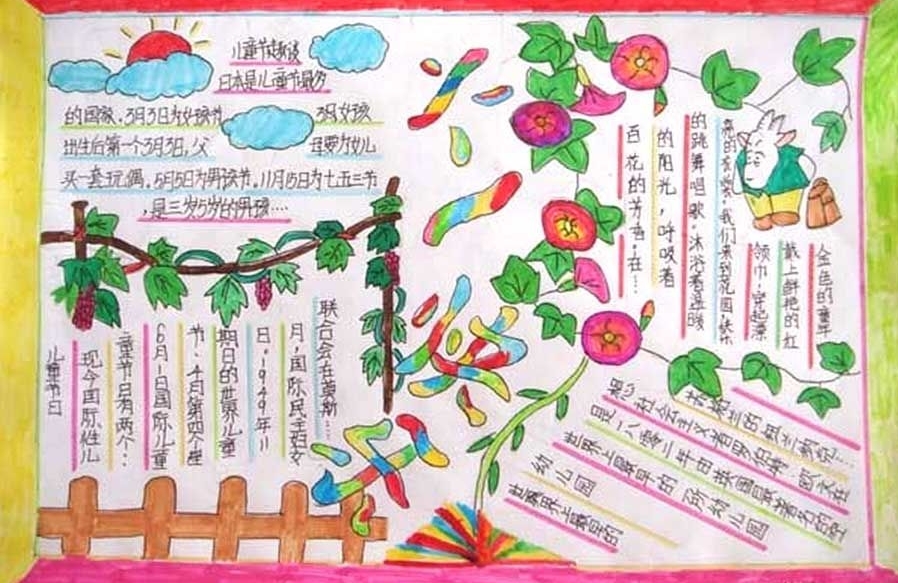 儿童节趣谈
日本是儿童节最多
的国家，3月3日为女孩节 3月女孩
出生后第一个3月3日，父 母要为幼儿
买一套玩偶。5月5日为男孩节，11月15日为七五三节
，是三岁5岁的男孩…
金色的童年
戴上鲜艳的红
领巾，穿起漂
亮的衣裳，我们来到花园，快乐
的跳舞唱歌，沐浴着温暖
的阳光，呼吸着
百花的芳香，在…
儿童节日
现今国际性儿
童节日有两个：
6月1日国际儿童
节、4月第四个星
期日的世界儿童
日。1949年11
月，国际民主妇女
联合会在莫斯…
世界上最早的
幼儿园
世界上最早的一所幼儿园
是一八零二年由英国最著名的空
想社会主义者罗伯特·欧文在
苏格兰的纽兰纳克…